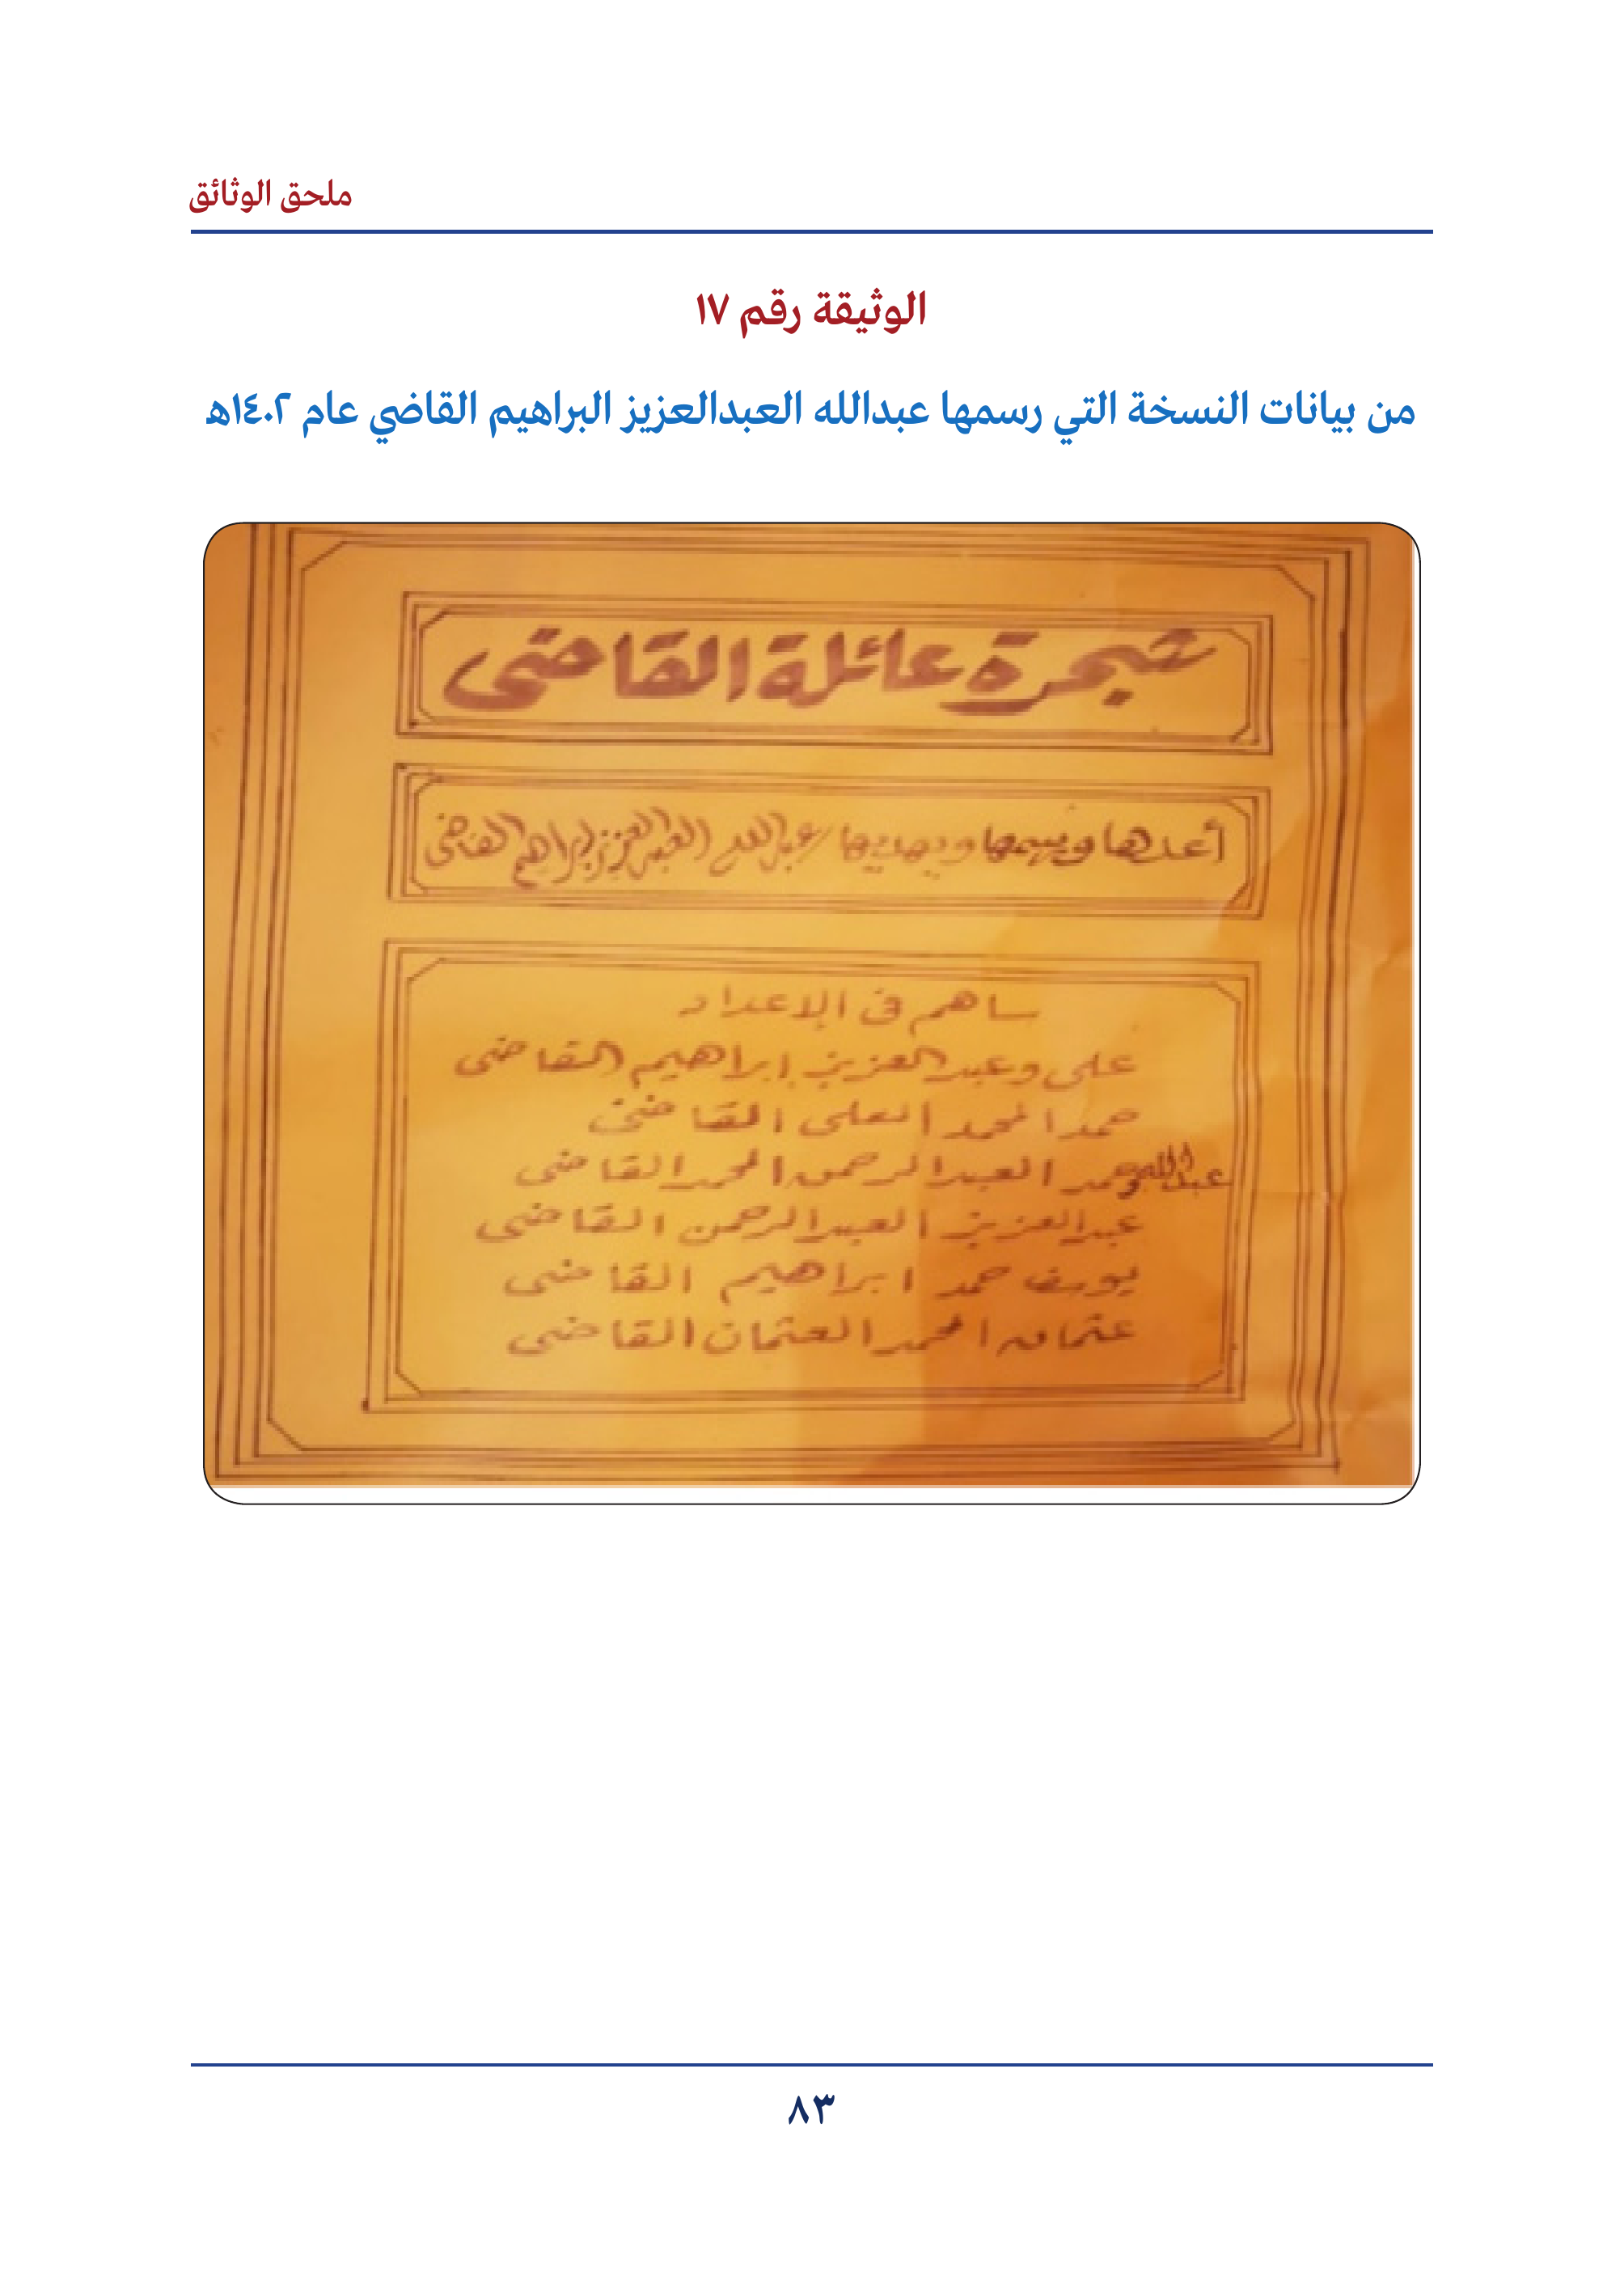 ملحق الوثائق
الوثيقة رقم ١٧
من بيانات النسخة التي رسمها عبدالله العبدالعزيز البراهيم القاضي عام ١٤٠٢هـ
شجرة عائلة القاضى
أعدها ويهديها عبدالله العبدالعزيز البراهيم القاضى
ساهم فى الإعداد
على وعبدالعزيز ابراهيم القاضى
حمد المحمد العلى القاضى
عبدالله وحمد العبدالرحمن المحمد القاضى
عبدالعزيز العبدالرحمن القاضى
يوسف حمد ابراهيم القاضى
عثمان المحمد العثمان القاضى
٨٣